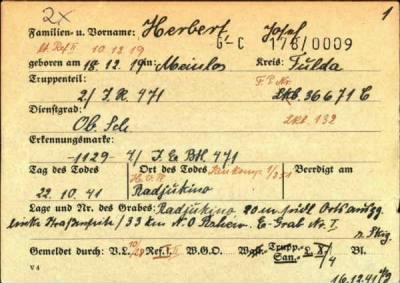 2x 1
Familien- u. Vorname: Herbert Josef
lt. Ref II 10.12.19 G-C 178/0009
geboren am 18.12.19 in: Kreis: Fulda
Truppenteil: F.P. Nr.
2/ J.R. 471 36671 C
Dienstgrad:
Ob. Sch 132
Erkennungsmarke:
-1129- 4/ J.E. Btl. 471
Tag des Todes Ort des Todes San. Komp. 1/251 Beerdigt am
H.V.P.
22.10.41 Radjukino
Lage und Nr. des Grabes: Radjukino 20 m südl. Ortsausgg.
linke Straßenseite / 33 km N.O. E-Grab Nr. I
Gemeldet durch: V.L. Ref. I. W.G.O. W. Trupp. L. Bl.
San.
V 4 16.12.41